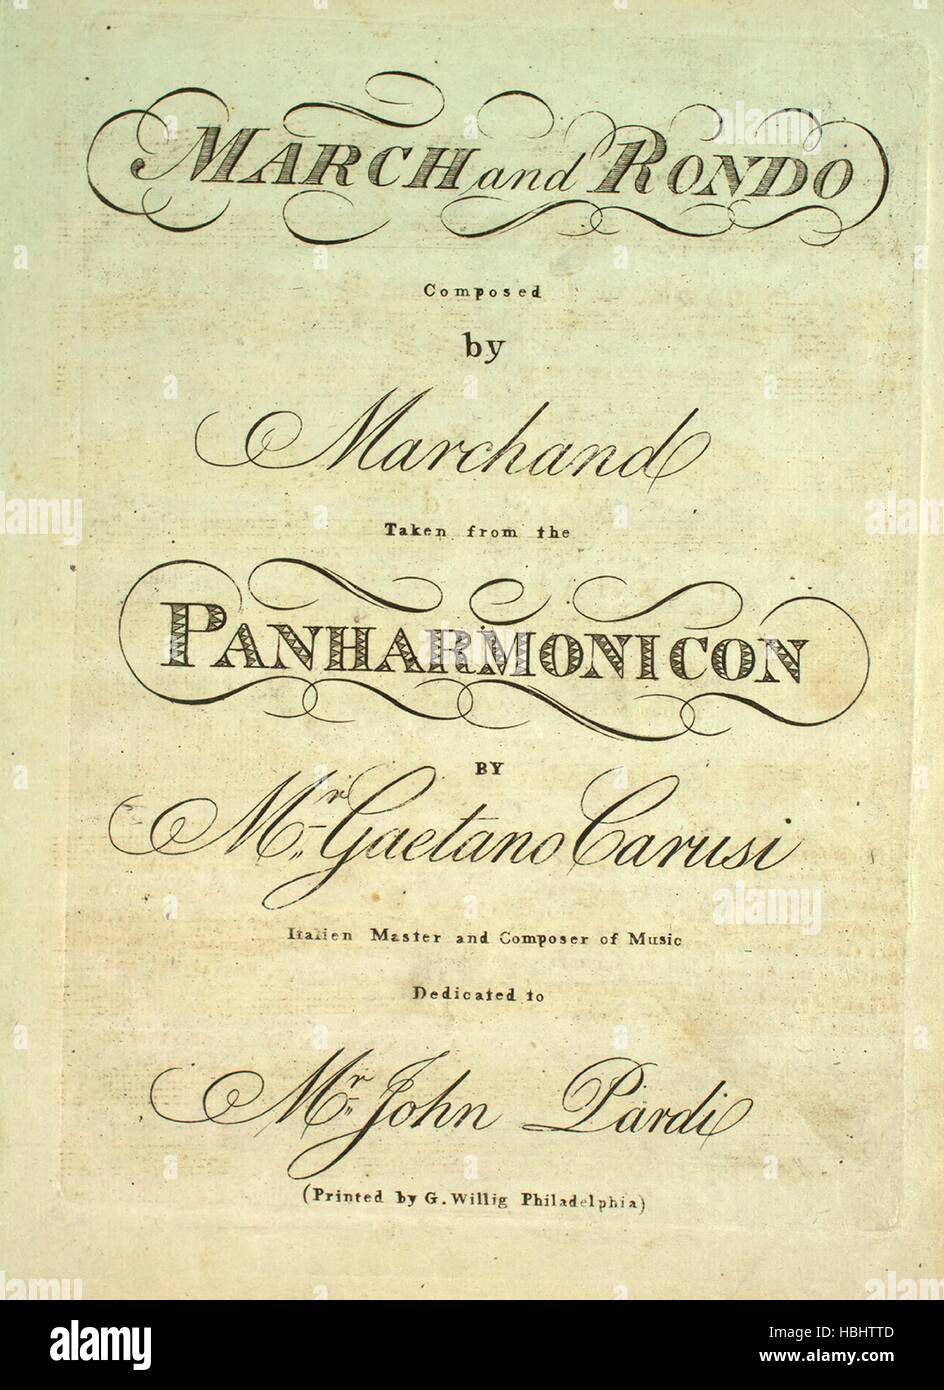 MARCH and RONDO
Composed
by
Marchand
Taken from the
PANHARMONICON
BY
Mr. Gaetano Carusi
Italien Master and Composer of Music
Dedicated to
Mr. John Pardi
(Printed by G. Willig Philadelphia)
alamy
a
alamy stock photo
HBHTTD
www.alamy.com